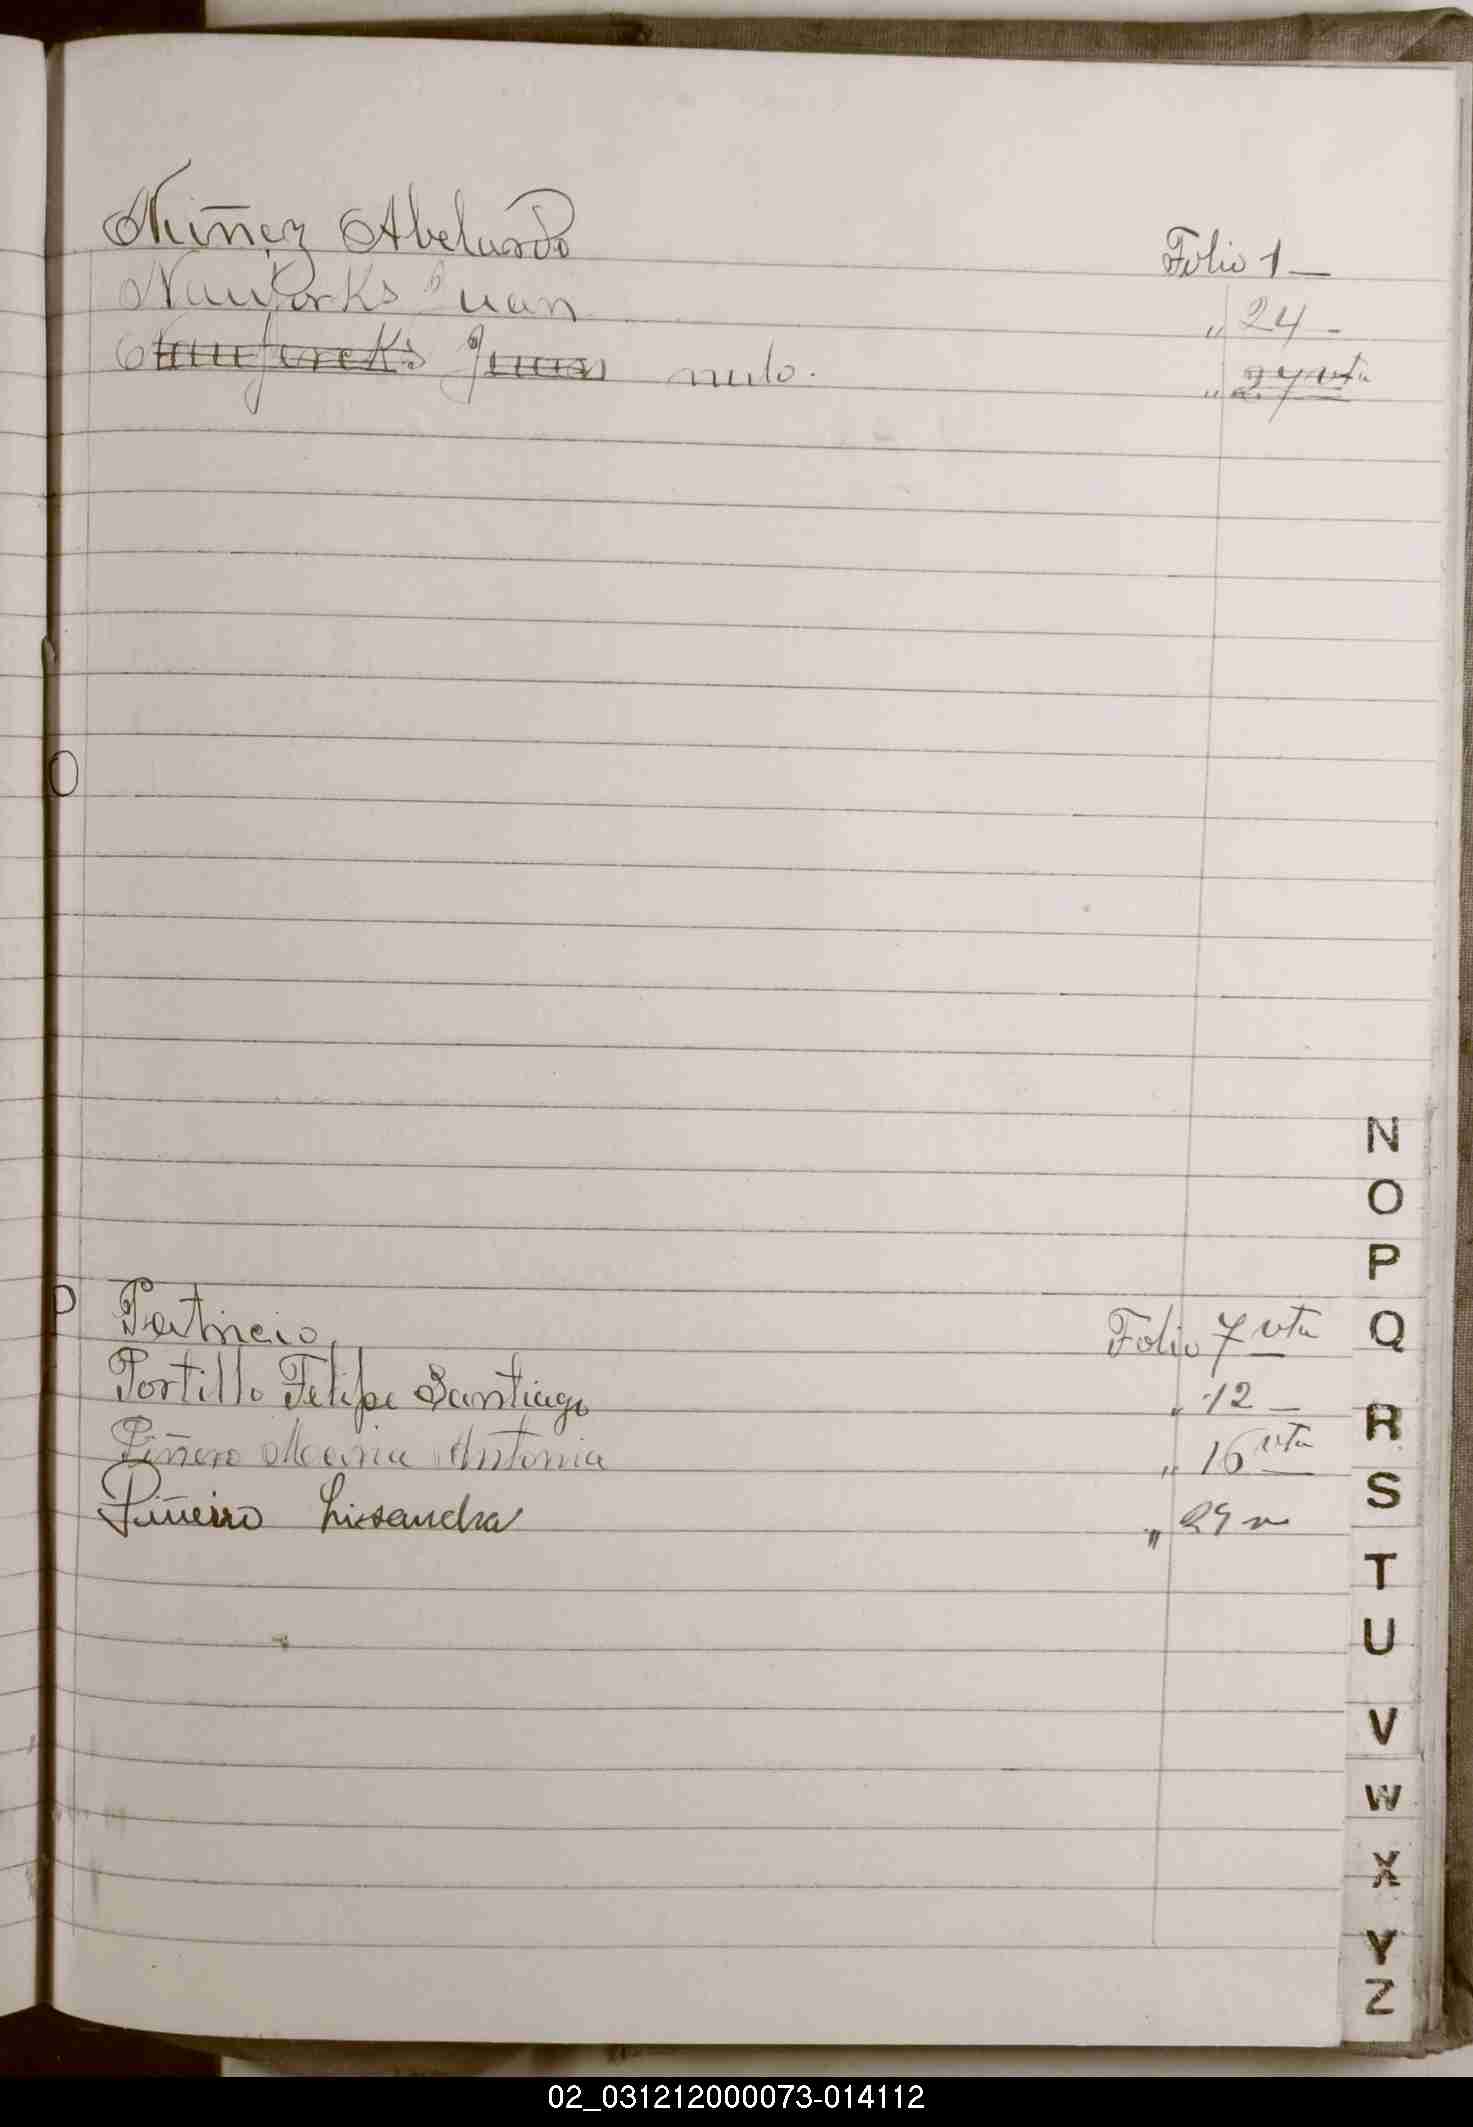 Nuñez Abelardo Folio 1 —
Juan " 24 -
Juan nulo. " 24 vta
O
P
Patricio Folio 7 vta
Portillo Felipe Santiago " 12 —
Piñero Maria Antonia " 16 vta
Piñeiro Lisandra " 29
N
O
P
Q
R
S
T
U
V
W
X
Y
Z
02_031212000073-014112